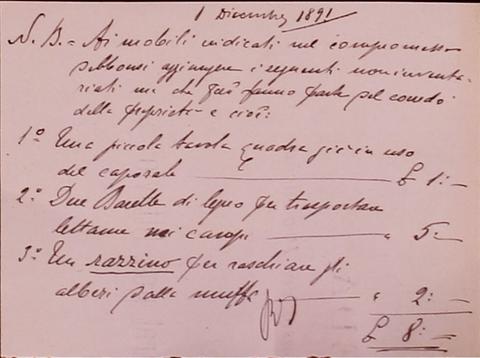 1 Dicembre 1891
N. B. = Ai mobili indicati nel compromesso
debbonsi aggiungere i seguenti non inventa-
riati ma che già fanno parte del corredo
della proprietà e cioè:
1° Una piccola tavola quadra già in uso
del caporale £ 1: —
2° Due Barelle di legno per trasportare
lettame nei campi " 5: —
3° Un razzino per raschiare gli
alberi dalla muffa " 2: —
£ 8: —